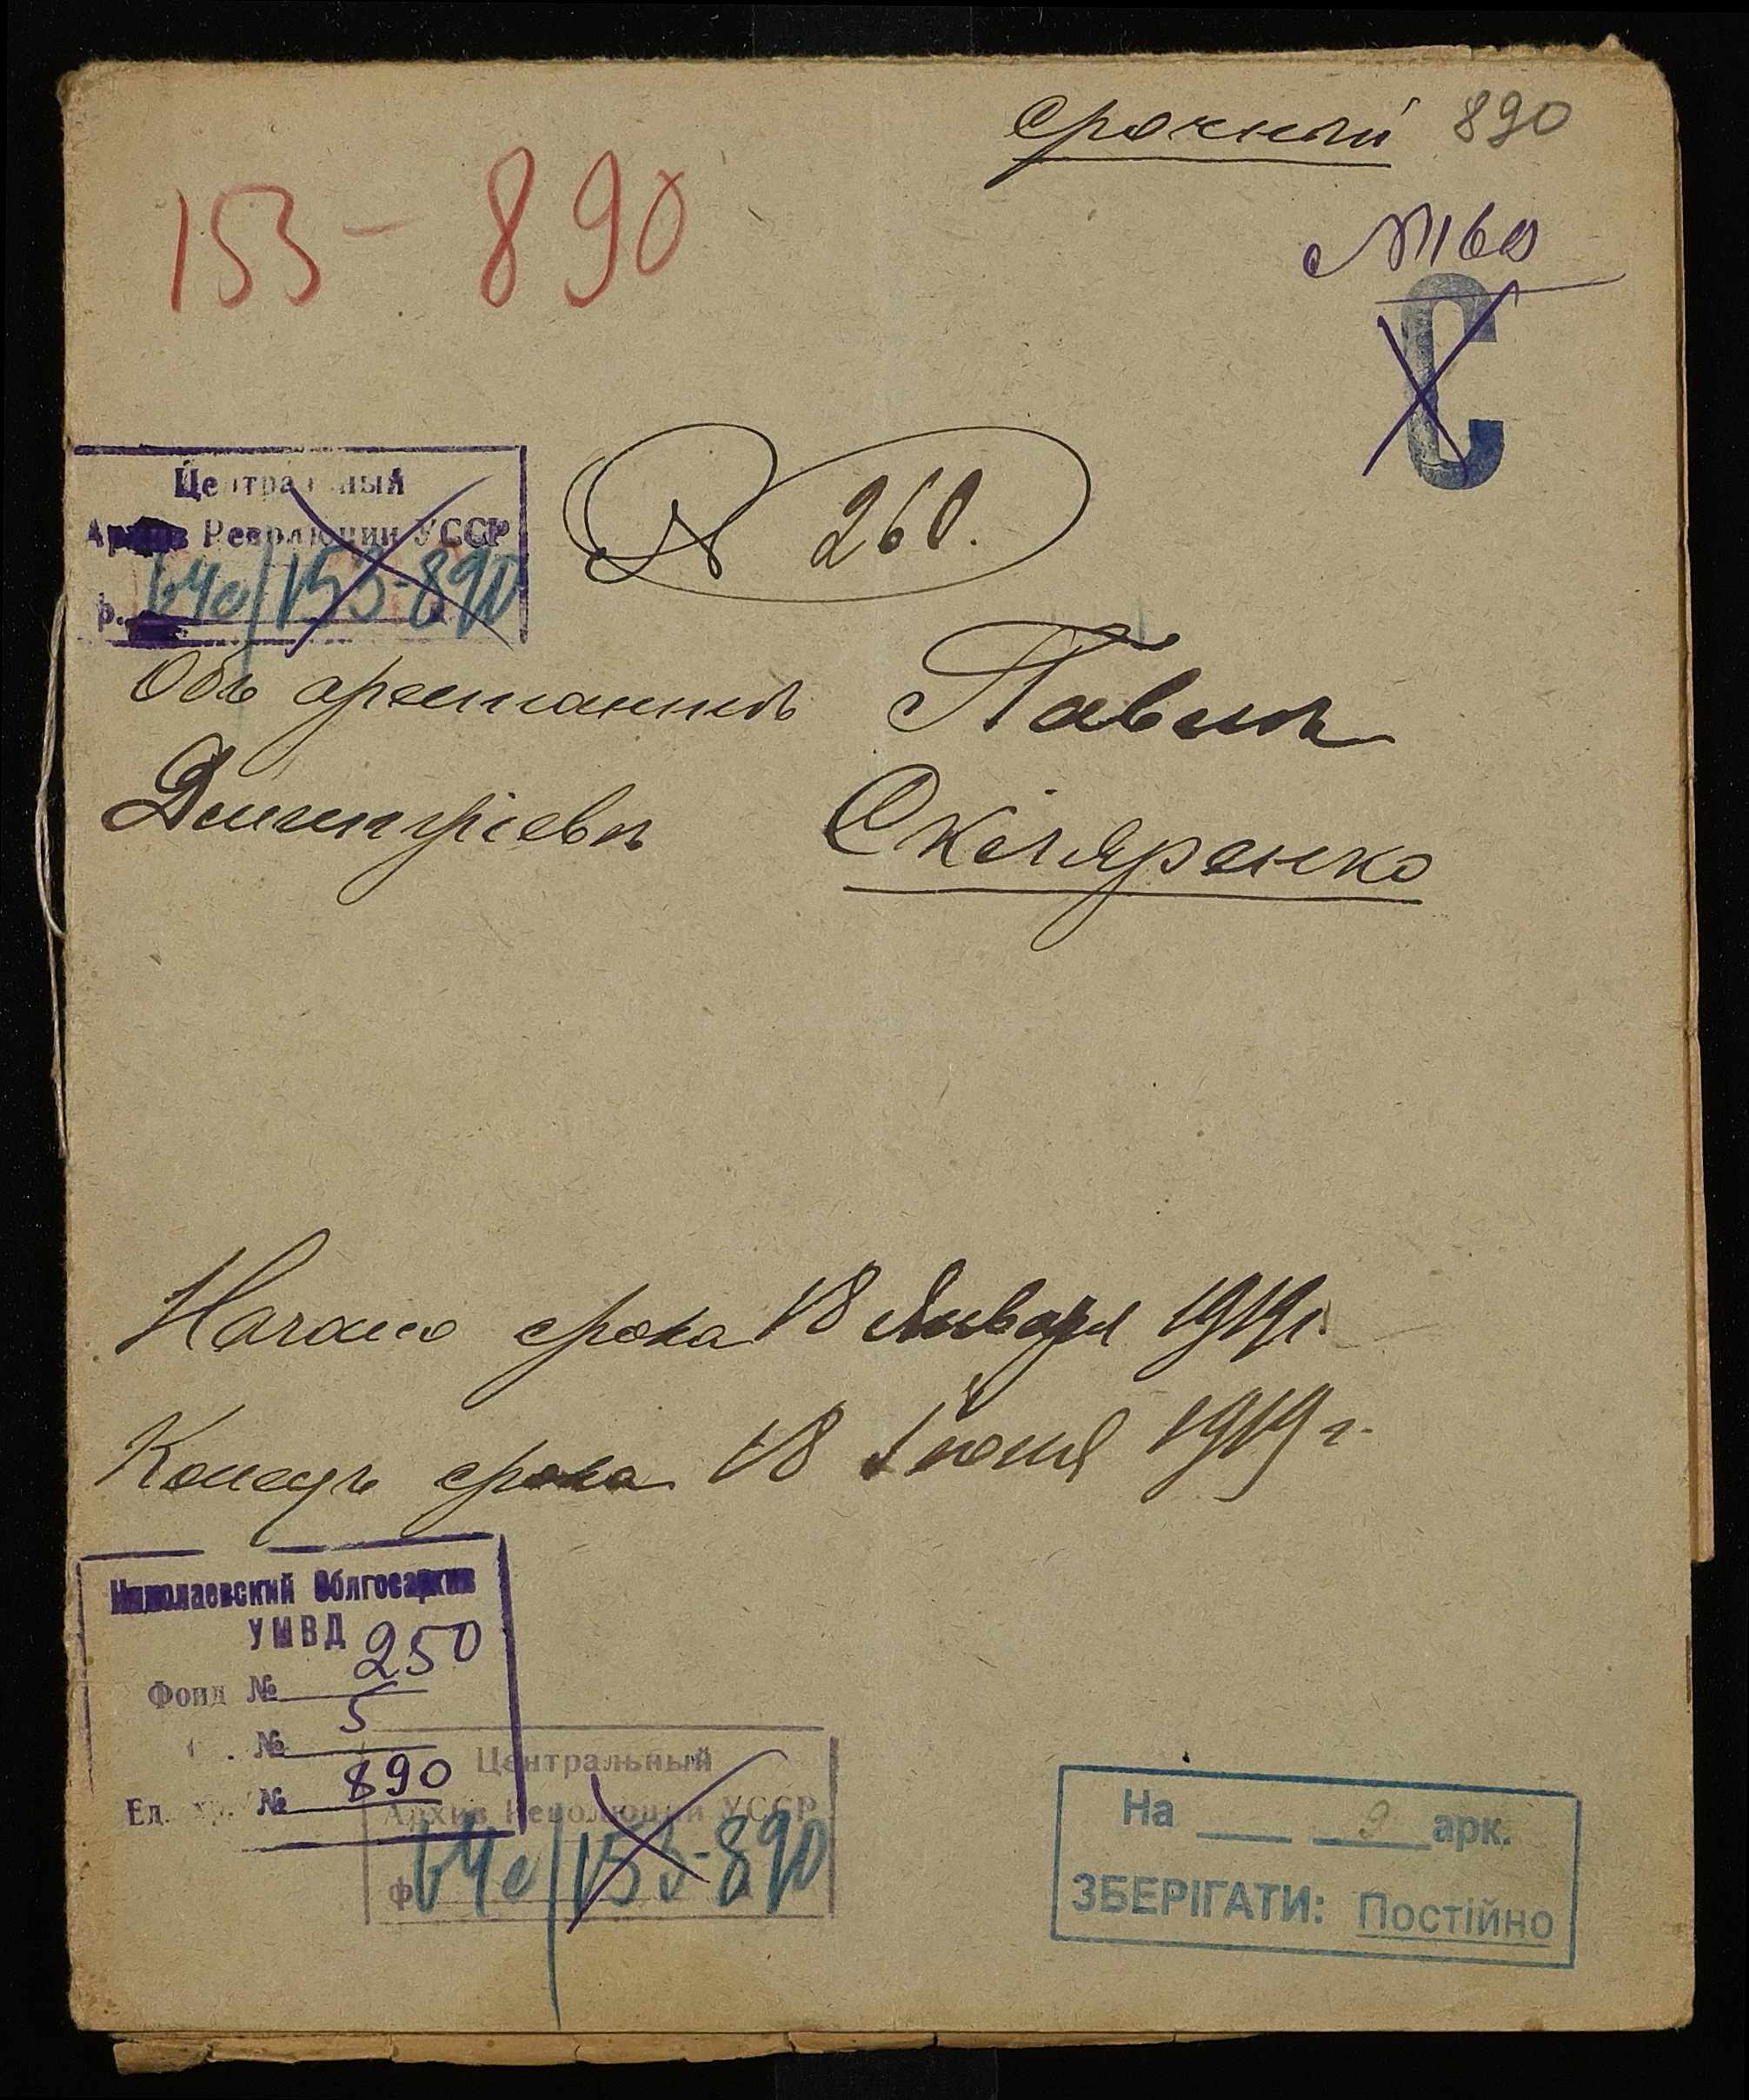 срочный 890
153-890
№ 160
С
Центральный
Архив Революции УССР
ф. 64с/153-890
№ 260.
Объ арестантѣ Павлѣ
Дмитріевѣ Скляренко
Начало срока 18 Января 1919 г.
Конецъ срока 18 Іюня 1919 г.
Николаевский Облгосархив
УМВД
Фонд № 250
№ 5
Ед. хр. № 890
Центральный
Архив Революции УССР
ф 64с/153-890
На 9 арк.
ЗБЕРІГАТИ: Постійно